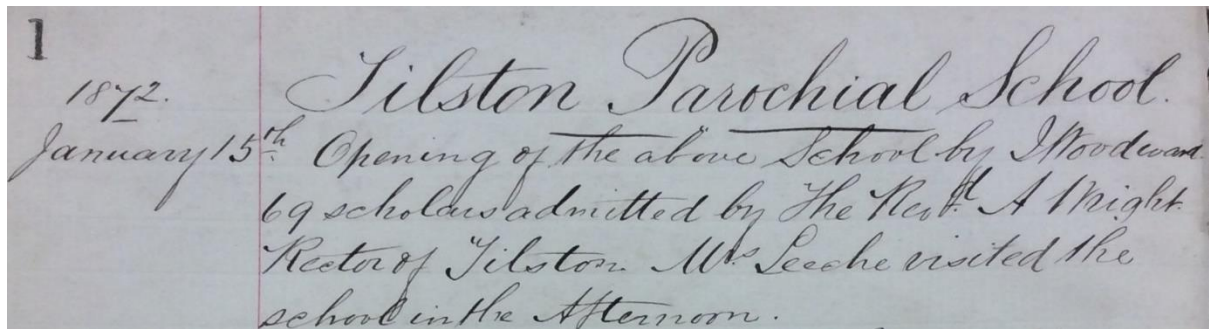 1
Tilston Parochial School.
1872.
January 15th. Opening of the above School by J Woodward.
69 scholars admitted by The Revd. A Wright.
Rector of Tilston. Mrs Leeche visited the
school in the Afternoon.